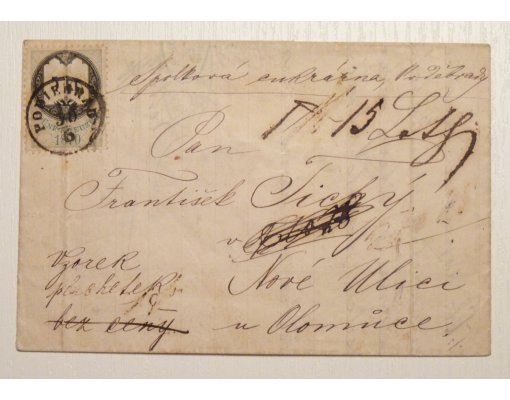 Spolková cukrárna, Poděbrady
PODIEBRAD
T 15
Pan
František Tichý
v
Nové Ulici
u Olomúce
Vzorek
bez ceny